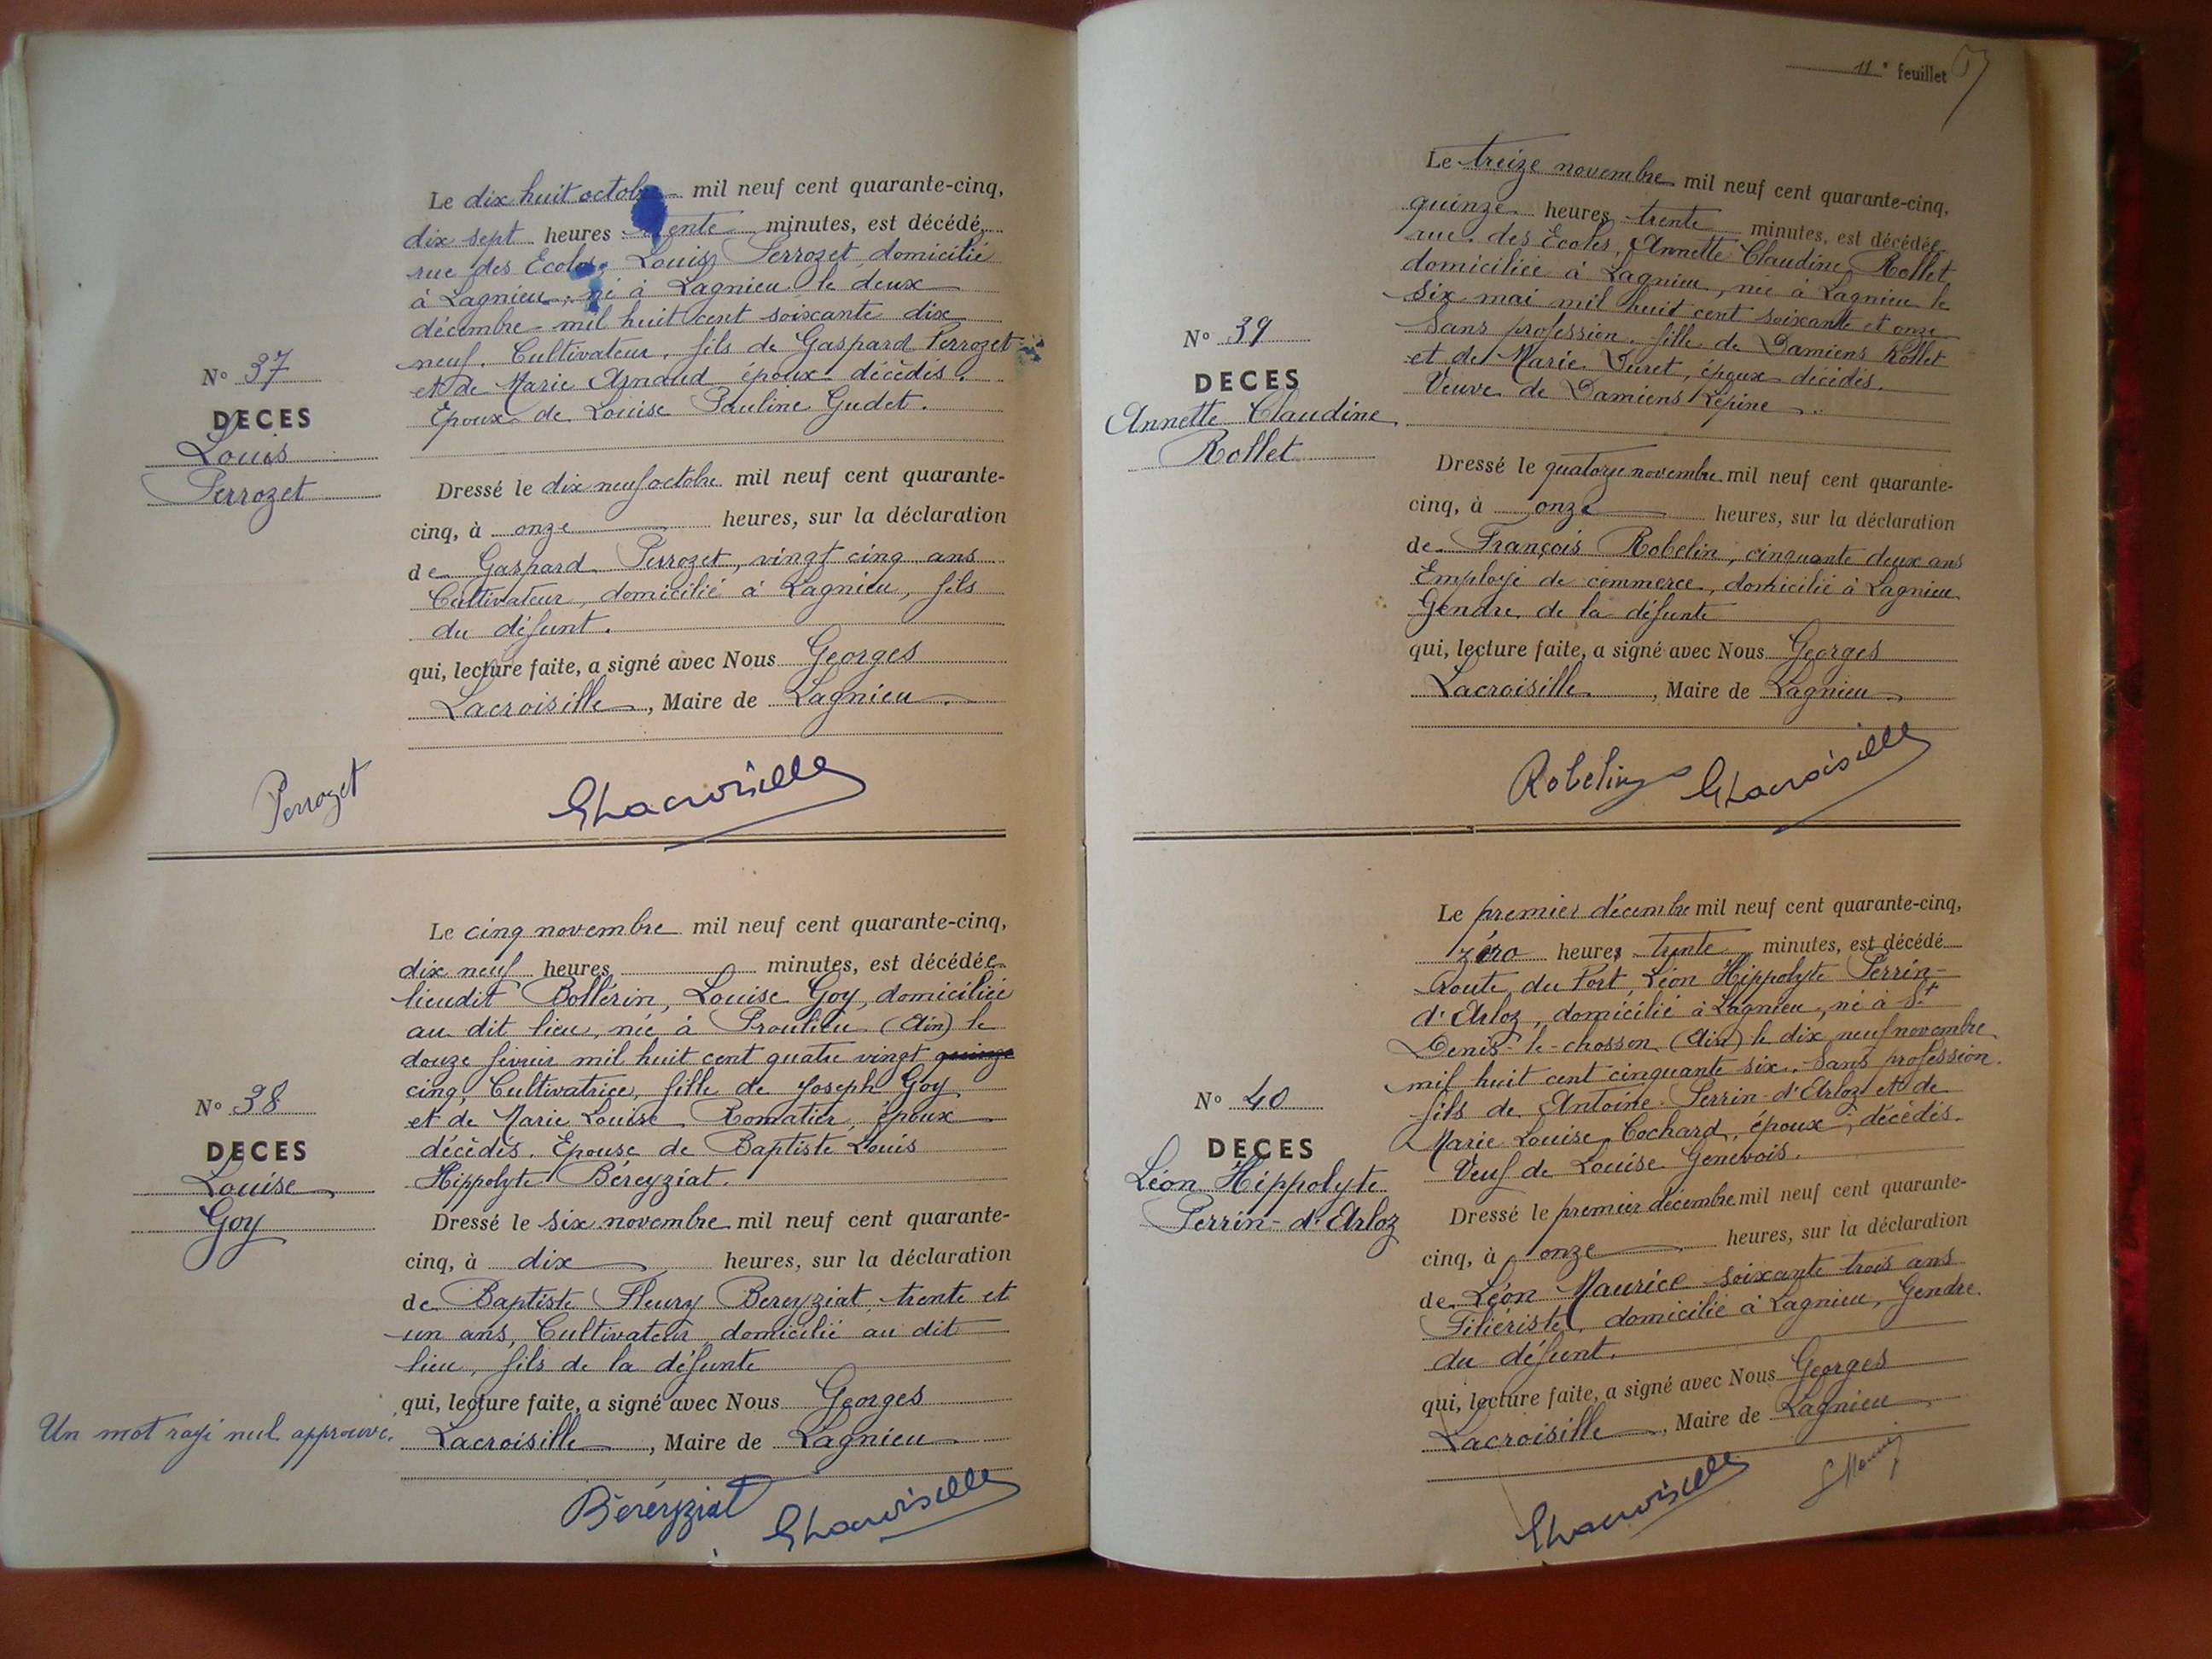 Le dix huit octobre mil neuf cent quarante-cinq,
dix sept heures trente minutes, est décédé
rue des Ecoles, Louis Perrozet domicilié
à Lagnieu, né à Lagnieu le deux
décembre mil huit cent soixante dix
neuf. Cultivateur, fils de Gaspard Perrozet
et de Marie Arnaud époux décédés.
Epoux de Louise Pauline Gudet.
N° 37
DECES
Louis
Perrozet
Dressé le dix neuf octobre mil neuf cent quarante-
cinq, à onze heures, sur la déclaration
de Gaspard Perrozet, vingt cinq ans
Cultivateur, domicilié à Lagnieu, fils
du défunt.
qui, lecture faite, a signé avec Nous Georges
Lacroisille, Maire de Lagnieu.
Perrozet GLacroisille
Le cinq novembre mil neuf cent quarante-cinq,
dix neuf heures minutes, est décédée
lieudit Bollérin, Louise Goy, domiciliée
au dit lieu, née à Proulieu (Ain) le
douze février mil huit cent quatre vingt quinze
cinq, Cultivatrice, fille de Joseph Goy
et de Marie Louise Romatier, époux
décédés. Epouse de Baptiste Louis
Hippolyte Béreyziat.
N° 38
DECES
Louise
Goy
Dressé le six novembre mil neuf cent quarante-
cinq, à dix heures, sur la déclaration
de Baptiste Fleury Bereyziat, trente et
un ans, Cultivateur domicilié au dit
lieu, fils de la défunte
qui, lecture faite, a signé avec Nous Georges
Un mot rayé nul approuvé.
Lacroisille, Maire de Lagnieu
Béréyziat GLacroisille
11e feuillet
Le treize novembre mil neuf cent quarante-cinq,
quinze heures trente minutes, est décédée
rue des Ecoles, Annette Claudine Rollet
domiciliée à Lagnieu, née à Lagnieu le
six mai mil huit cent soixante et onze
Sans profession. fille de Damiens Rollet
et de Marie Duret, époux décédés.
Veuve de Damiens Lépine.
N° 39
DECES
Annette Claudine
Rollet
Dressé le quatorze novembre mil neuf cent quarante-
cinq, à onze heures, sur la déclaration
de François Robelin, cinquante deux ans
Employé de commerce, domicilié à Lagnieu
Gendre de la défunte
qui, lecture faite, a signé avec Nous Georges
Lacroisille, Maire de Lagnieu
Robelin GLacroisille
Le premier décembre mil neuf cent quarante-cinq,
zéro heures trente minutes, est décédé
Route du Port, Léon Hippolyte Perrin-
d'Arloz, domicilié à Lagnieu, né à St
Denis-le-chosson (Ain) le dix neuf novembre
mil huit cent cinquante six. Sans profession.
fils de Antoine Perrin-d'Arloz et de
Marie Louise Cochard, époux, décédés.
Veuf de Louise Genevois.
N° 40
DECES
Léon Hippolyte
Perrin-d'Arloz
Dressé le premier décembre mil neuf cent quarante-
cinq, à onze heures, sur la déclaration
de Léon Maurice soixante trois ans
Filiériste, domicilié à Lagnieu, Gendre
du défunt.
qui, lecture faite, a signé avec Nous Georges
Lacroisille, Maire de Lagnieu
GLacroisille